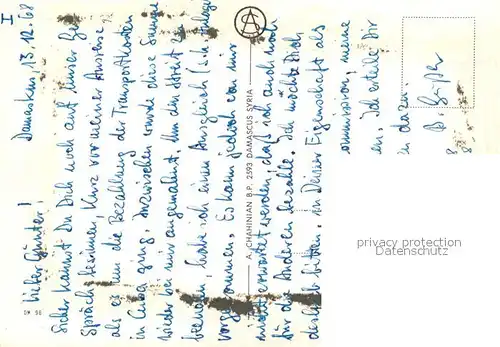 I
Damaskus, 13.12.68
Lieber Günter!
Sicher kannst Du Dich noch auf unser Ge-
spräch besinnen kurz vor meiner Ausreise
als es um die Bezahlung der Transportkosten
in Cuba ging. Inzwischen wurde diese Summe
wieder bei mir angemahnt. Um den Streit zu
beenden, habe ich einen Ausgleich (s. Anlage)
vorgenommen. Es kann jedoch von mir
nicht erwartet werden, daß ich auch noch
für die Anderen bezahle. Ich möchte Dich
deshalb bitten, in Deiner Eigenschaft als
ommission, meine
en. Ich erteile Dir
dazu.
A. CHAHINIAN B.P. 2593 DAMASCUS SYRIA
privacy protection
Datenschutz